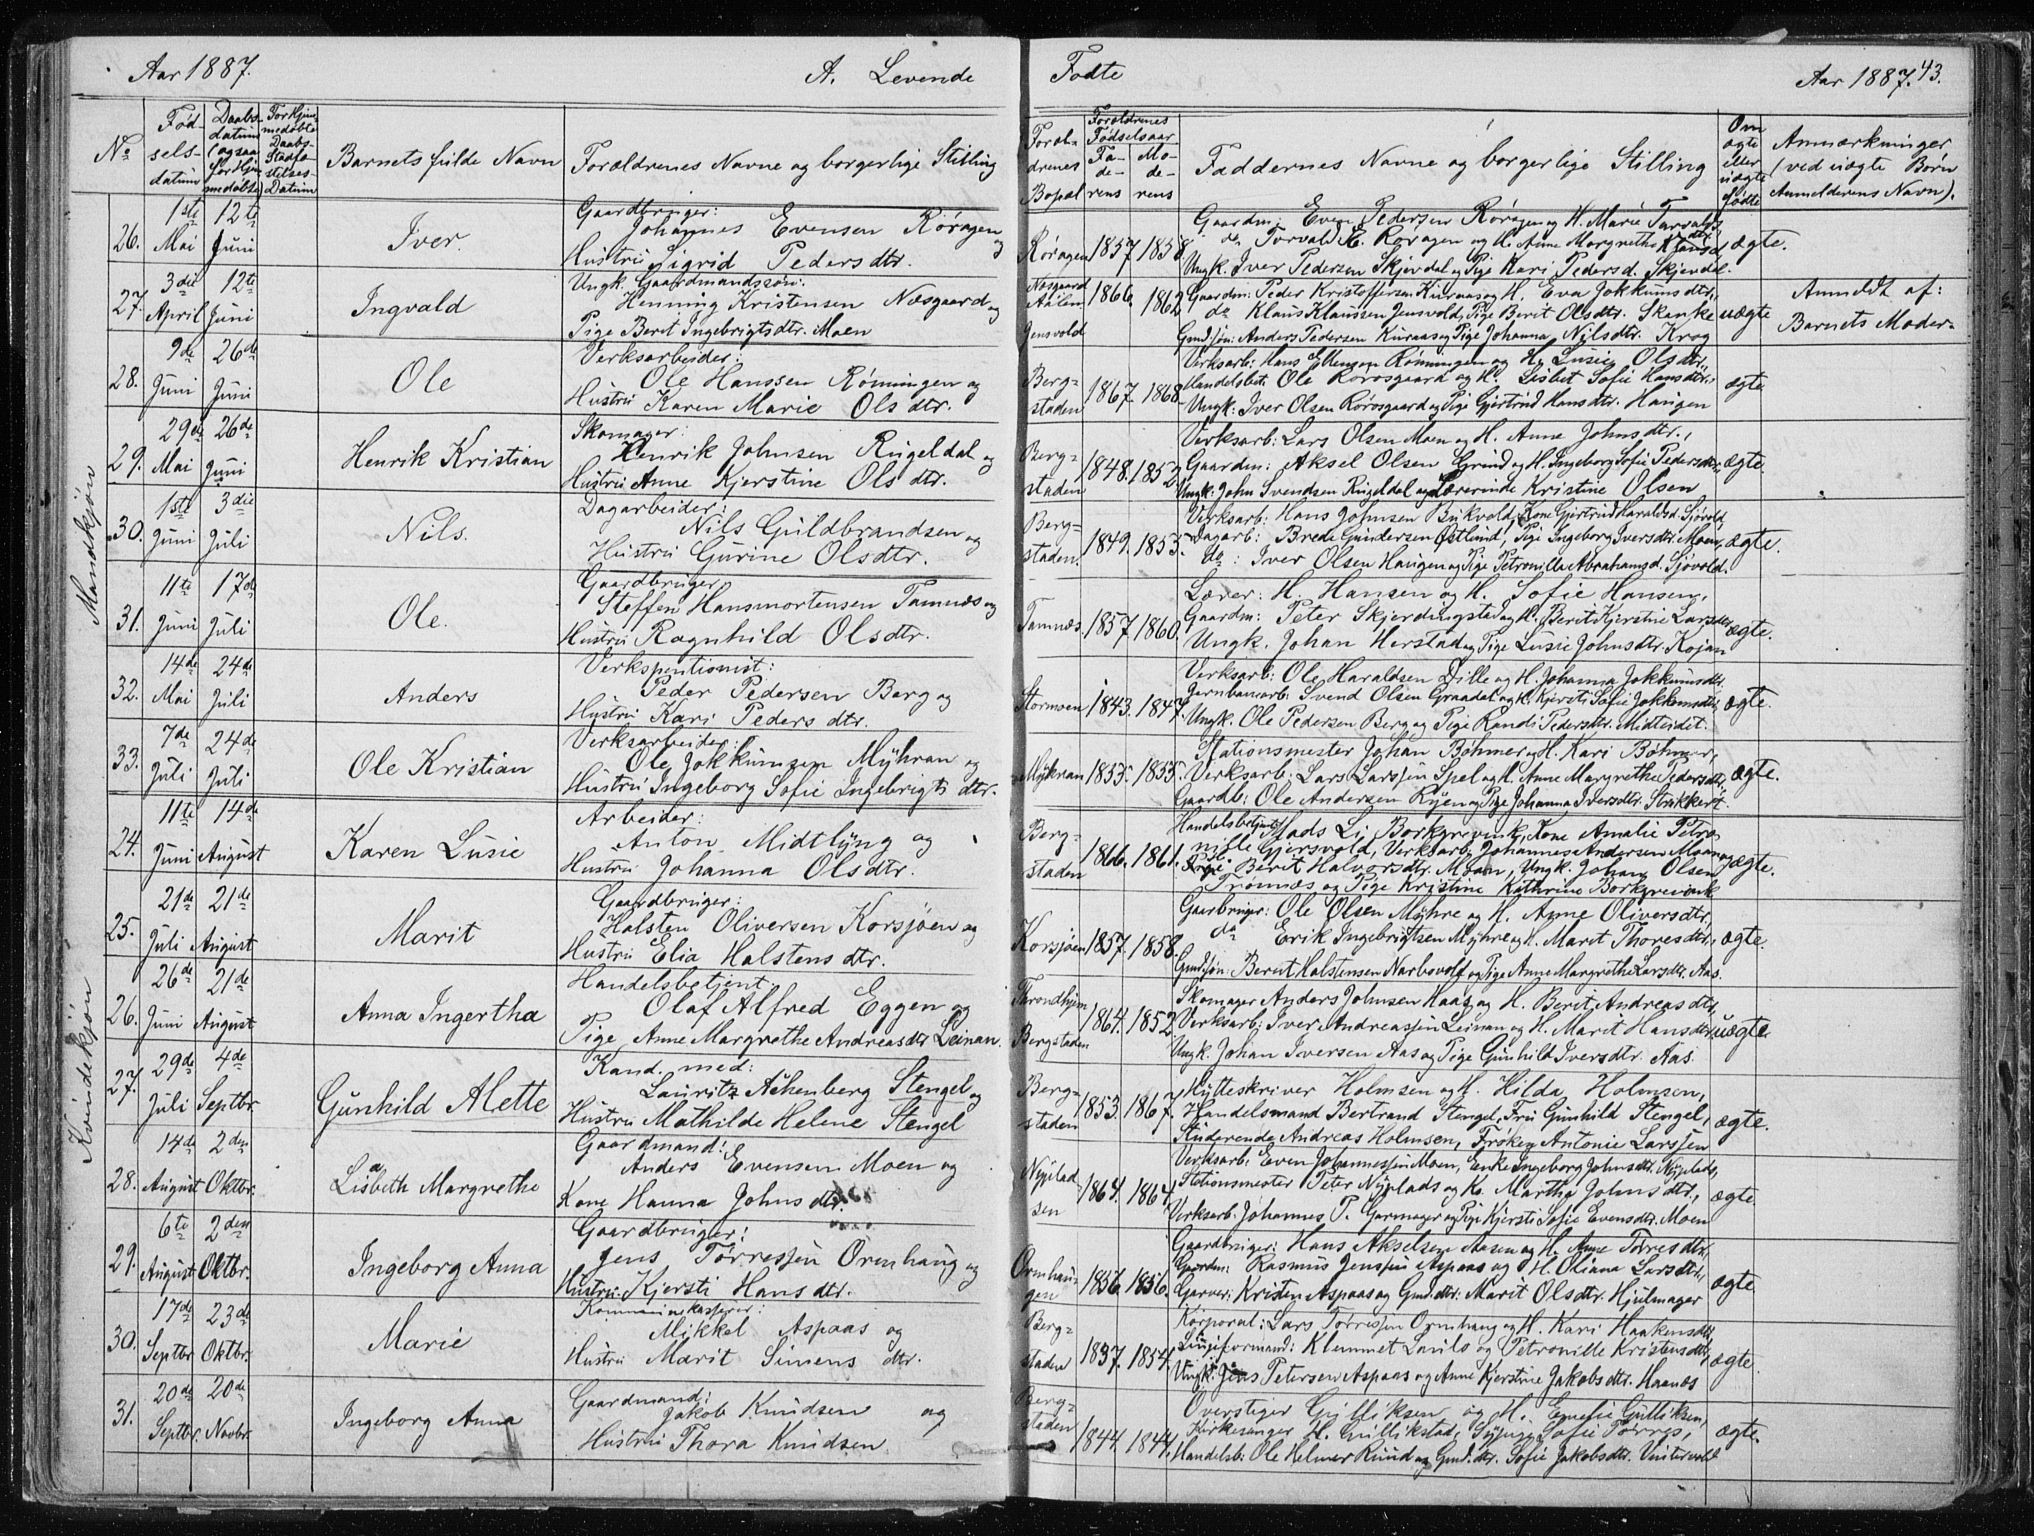 Aar 1887.
A. Levende
Fødte
Aar 1887. 43.
No
Fød-
sels-
datum
Daabs-
datum
(ogsaa
for Hjem
medøbte)
For Hjem
medøbte
Daabs-
Stadfæ-
stelses-
Datum
Barnets fulde Navn
Forældrenes Navne og borgerlige Stilling
Foræl-
drenes
Bopæl
Forældrenes
Fødselsaar
Fa-
de-
rens
Mo-
de-
rens
Faddernes Navne og borgerlige Stilling
Om
ægte
eller
uægte
fødte
Anmærkninger
(ved uægte Børn
Anmelderens Navn).
Mandkjøn
26.
1ste Mai
12te Juni
Iver.
Gaardbruger:
Johannes Evensen Røragen og
Hustru Sigrid Pedersdtr.
Røragen
1857
1858
Gaardm: Even Pedersen Røragen og H. Marie Tarvaldsdtr,
do Torvald E. Røragen og H. Anne Margrethe
Ungk. Iver Pedersen Skjevdal og Pige Kari Pedersd. Skjevdal.
ægte.
27.
3die April
12te Juni
Ingvald
Ungk. Gaardmandssøn:
Henning Kristensen Næsgaard og
Pige Berit Ingebrigtsdtr. Moen
Næsgaard
Aalen
Jensvold
1866
1862
Gaardm: Peder Kristoffersen Kuraas og H. Eva Jokkumsdtr,
do Klaus Klaussen Jensvold, Pige Berit Olsdtr. Skanke
Gmdsøn: Anders Pedersen Kuraas og Pige Johanna Nilsdtr. Krog
uægte
Anmeldt af:
Barnets Moder
28.
9de Juni
26de Juni
Ole
Verksarbeider:
Ole Hanssen Rønningen og
Hustru Karen Marie Olsdtr.
Berg-
staden
1867
1868
Verksarb: Hans Ellensen Rønningen og H. Lusie Olsdtr,
Handelsbet: Ole Rørosgaard og H. Lisbet Sofie Hansdtr,
Ungk: Iver Olsen Rørosgaard og Pige Gjertrud Hansdtr. Haugen
ægte
29.
29de Mai
26de Juni
Henrik Kristian
Skomager:
Henrik Johnsen Rugeldal og
Hustru Anne Kjerstine Olsdtr.
Berg-
staden
1848.
1852
Verksarb: Lars Olsen Moen og H. Anne Johnsdtr.,
Gaardm: Aksel Olsen Grind og H. Ingeborg Sofie Pedersdtr,
Ungk: John Svendsen Rugeldal og Lærerinde Kristine Olsen
ægte.
30.
1ste Juni
3die Juli
Nils.
Dagarbeider:
Nils Guldbrandsen og
Hustru Gurine Olsdtr.
Berg-
staden.
1849.
1853.
Verksarb: Hans Johnsen Bukvold, Kone Gjertrud Haraldsd. Sjøvold,
Dagarb: Brede Gundersen Østlund, Pige Ingeborg Iversdtr. Moen,
do: Iver Olsen Haugen og Pige Petronille Abrahamsd. Sjøvold.
ægte.
31.
11te Juni
17de Juli
Ole.
Gaardbruger,
Steffen Hansmortensen Tamnæs og
Hustru Ragnhild Olsdtr.
Tamnæs.
1857.
1860.
Lærer: H. Hansen og H. Sofie Hansen,
Gaardm: Peter Skjerdingstad og H. Berit Kjerstine Larsdtr,
Ungk. Johan Herstad og Pige Lusie Johnsdtr. Kojan
ægte.
32.
14de Mai
24de Juli
Anders
Verkspentionist:
Peder Pedersen Berg og
Hustru Kari Pedersdtr.
Stormoen
1843.
1847.
Verksarb: Ole Haraldsen Dille og H. Johanna Jokkumsdtr.
Jernbanearb: Svend Olsen Graadal og H. Kjersti Sofie Jokkumsdtr,
Ungk. Ole Pedersen Berg og Pige Randi Pedersdtr. Midtlidet.
ægte.
33.
7de Juli
24de Juli
Ole Kristian
Verksarbeider:
Ole Jokkumsen Myhran og
Hustru Ingeborg Sofie Ingebrigtsdtr.
Myhran
1855.
1855.
Stationsmester Johan Bøhmer og H. Kari Bøhmer,
Verksarb: Lars Larssen Spel og H. Anne Margrethe Pedersdtr,
Gaardb: Ole Andersen Ryen og Pige Johanna Iversdtr. Strikkert
ægte.
Kvindekjøn
24.
11te Juni
14de August
Karen Lusie
Arbeider:
Anton Midtlyng og
Hustru Johanna Olsdtr.
Berg-
staden
1866.
1861.
Handelsbetjent Mads Li Borkgrevink, Kone Amalie Petro-
nille Gjersvold, Verksarb. Johannes Andersen Moan og
Pige Berit Halvorsdtr. Moan, Ungk. Johan Olsen
Trønnæs og Pige Kristine Kathrine Borkgrevink
ægte.
25.
21de Juli
21de August
Marit
Gaardbruger:
Halsten Oliversen Korsjøen og
Hustru Elia Halstensdtr.
Korsjøen
1857.
1858.
Gaarbruger: Ole Olsen Myhre og H. Anne Oliversdtr.
do Erik Ingebrigtsen Myhre og H. Marit Thoresdtr,
Gmdsøn: Bernt Halstensen Narbuvol og Pige Anne Margrethe Larsdtr. Aas.
ægte.
26.
26de Juni
21de August
Anna Ingertha
Handelsbetjent,
Olaf Alfred Eggen og
Pige Anne Margrethe Andreasdtr Leinan.
Trondhjem
Bergstaden
1864.
1852
Skomager Anders Johnsen Haas og H. Berit Andreasdtr,
Verksarb: Iver Andreassen Leinan og H. Marit Hansdtr,
Ungk. Johan Iversen Aas og Pige Gunhild Iversdtr. Aas.
uægte
27.
29de Juli
4de Septbr.
Gunhild Alette
Kand. med:
Lauritz Achenberg Stengel og
Hustru Mathilde Helene Stengel
Berg-
staden
1853.
1867.
Hytteskriver Holmsen og H. Hilda Holmsen,
Handelsmand Bertrand Stengel, Fru Gunhild Stengel,
Studerende Andreas Holmsen, Frøken Antonie Larssen
ægte.
28.
14de August
2den Oktbr.
Lisbeth Margrethe
Gaardmand:
Anders Evensen Moen og
Kone Hanna Johnsdtr.
Nyplad
sen
1864.
1864.
Verksarb: Even Johannessen Moen, Enke Ingeborg Johnsdtr. Nyplads,
Stationsmester Peter Nyplads og K. Martha Johnsdtr.,
Verksarb: Johannes P. Garmager og Pige Kjersti Sofie Evensdtr. Moen
ægte.
29.
6te August
2den Oktbr.
Ingeborg Anna
Gaardbruger:
Jens Tørressen Ormhaug og
Hustru Kjersti Hansdtr.
Ormhau-
gen
1856.
1856.
Gaardbruger: Hans Akselsen Aasen og H. Anne Tørresdtr,
Gaardm: Rasmus Jenssen Aspaas og H. Oliana Larsdtr,
Garver: Kristen Aspaas og Gmd.dtr. Marit Olsdtr. Hjulmager
ægte.
30.
17de Septbr
23de Oktbr.
Marie
Kommunekasserer:
Mikkel Aspaas og
Hustru Marit Simensdtr.
Berg-
staden
1857.
1854.
Korporal: Lars Tørressen Ormhaug og H. Kari Haakensdtr,
Linjeformand: Klemmet og Petronille Kristensdtr,
Ungk. Jens Petersen Aspaas og Anne Kjerstine Jakobsdtr. Haanæs
ægte.
31.
20de Septbr.
20de Novbr.
Ingeborg Anna
Gaardmand:
Jakob Knudsen og
Hustru Thora Knudsen
Berg-
staden
1844.
1844.
Overstiger Gulliksen og H. Emelie Gulliksen,
Kirkesanger H. Gullikstad, Sofie Tørres,
Handelsb: Ole Helmer Ruud og Gmd.dtr. Sofie Jakobsdtr. Vintervold
ægte.